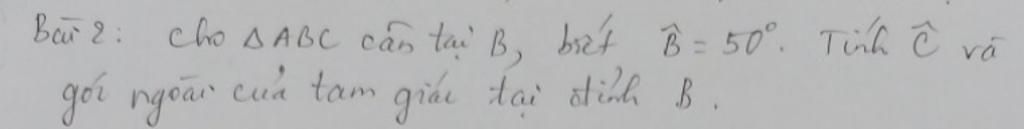 Bài 2: Cho ΔABC cân tại B, biết B̂ = 50°. Tính Ĉ và
gói ngoài của tam giác tại đỉnh B.